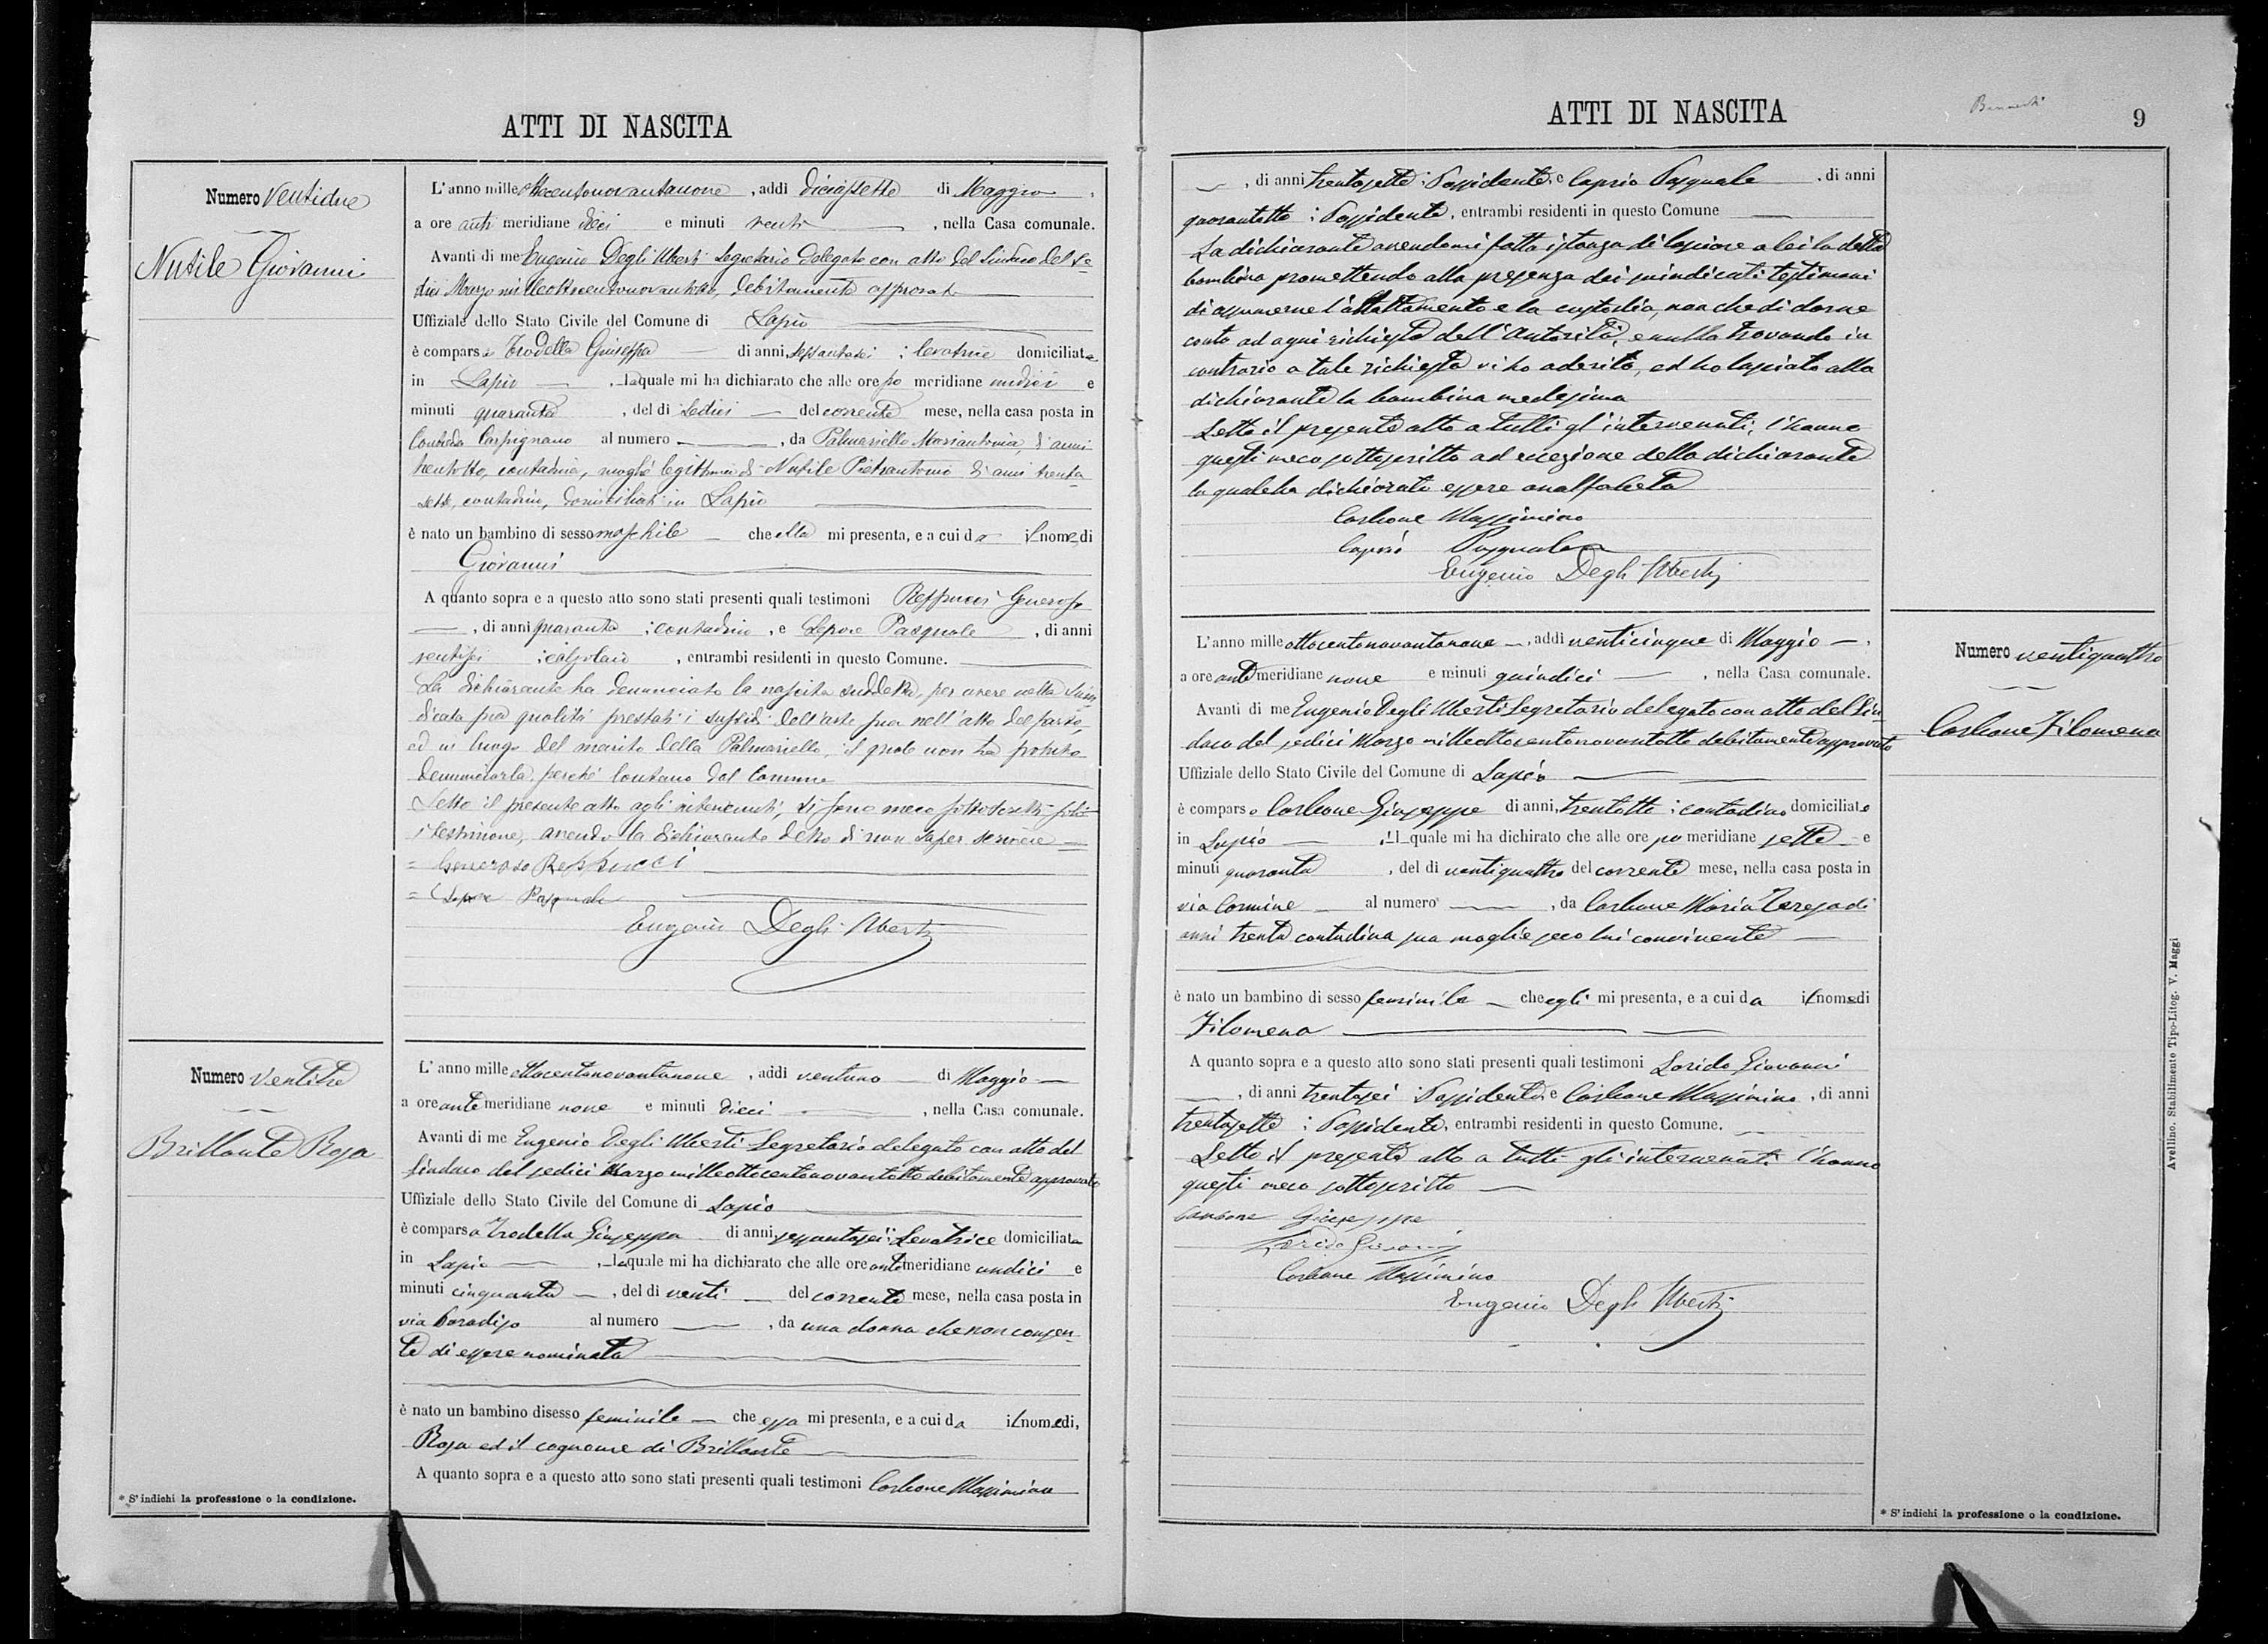 ATTI DI NASCITA
Numero Ventidue
Nutile Giovanni
L'anno mille ottocentonovantanove, addì diciassette di Maggio,
a ore anti meridiane dieci e minuti venti, nella Casa comunale.
Avanti di me Eugenio Degli Uberti Segretario delegato con atto del Sindaco del Se-
dici Marzo milleottocentonovantotto, debitamente approvato
Uffiziale dello Stato Civile del Comune di Lapio
è comparsa Trodella Giuseppa di anni sessantasei; levatrice domiciliata
in Lapio, la quale mi ha dichiarato che alle ore po meridiane undici e
minuti quaranta, del dì sedici del corrente mese, nella casa posta in
Contrada Carpignano al numero , da Palmariello Mariantonia, di anni
trentotto, contadina, moglie legittima di Nutile Pietrantonio di anni trenta
sette, contadino, domiciliati in Lapio
è nato un bambino di sesso maschile che ella mi presenta, e a cui da il nome di
Giovanni
A quanto sopra e a questo atto sono stati presenti quali testimoni Reppucci Generoso
, di anni quaranta; contadino, e Lepore Pasquale, di anni
ventisei; calzolaio, entrambi residenti in questo Comune.
La dichiarante ha denunciato la nascita suddetta, per avere nella suin-
dicata sua qualità prestati i sussidi dell'arte sua nell'atto del parto,
ed in luogo del marito della Palmariello, il quale non ha potuto
denunciarla perché lontano dal Comune
Letto il presente atto agli intervenuti, si sono meco sottoscritti
i testimone, avendo la dichiarante detto di non saper scrivere
= Generoso Reppucci
= Lepore Pasquale
Eugenio Degli Uberti
Numero Ventitre
Brillante Rosa
L'anno mille ottocentonovantanove, addì ventuno di Maggio
a ore ante meridiane nove e minuti dieci, nella Casa comunale.
Avanti di me Eugenio Degli Uberti Segretario delegato con atto del
Sindaco del sedici Marzo milleottocentonovantotto debitamente approvato
Uffiziale dello Stato Civile del Comune di Lapio
è comparsa Trodella Giuseppa di anni sessantasei; Levatrice domiciliata
in Lapio, la quale mi ha dichiarato che alle ore anti meridiane undici e
minuti cinquanta, del dì venti del corrente mese, nella casa posta in
via Paradiso al numero , da una donna che non consen-
te di essere nominata
è nato un bambino di sesso feminile che essa mi presenta, e a cui da il nome di,
Rosa ed il cognome di Brillante
A quanto sopra e a questo atto sono stati presenti quali testimoni Carbone Massimino
* S'indichi la professione o la condizione.
ATTI DI NASCITA
9
, di anni trentasette; Possidente, e Caprio Pasquale, di anni
quarantotto; Possidente, entrambi residenti in questo Comune
La dichiarante avendomi fatta istanza di lasciare a lei la detta
bambina promettendo alla presenza dei suindicati testimoni
di assumerne l'allattamento e la custodia, non che di darne
conto ad ogni richiesta dell'Autorità, e nulla trovando in
contrario a tale richiesta vi ho aderito, ed ho lasciato alla
dichiarante la bambina medesima
Letto il presente atto a tutti gl'intervenuti, l'hanno
questi meco sottoscritto ad eccezione della dichiarante
la quale ha dichiarato essere analfabeta
Carbone Massimino
Caprio Pasquale
Eugenio Degli Uberti
Numero ventiquattro
Carbone Filomena
L'anno mille ottocentonovantanove, addì venticinque di Maggio,
a ore ante meridiane nove e minuti quindici, nella Casa comunale.
Avanti di me Eugenio Degli Uberti Segretario delegato con atto del Sin-
daco del sedici Marzo milleottocentonovantotto debitamente approvato
Uffiziale dello Stato Civile del Comune di Lapio
è comparso Carbone Giuseppe di anni, trentotto; contadino domiciliato
in Lapio, il quale mi ha dichirato che alle ore po meridiane sette e
minuti quaranta, del dì ventiquattro del corrente mese, nella casa posta in
via Carmine al numero , da Carbone Maria Teresa di
anni trenta contadina sua moglie seco lui convivente
è nato un bambino di sesso feminile che egli mi presenta, e a cui da il nome di
Filomena
A quanto sopra e a questo atto sono stati presenti quali testimoni Lorido Giovanni
, di anni trentasei Possidente, e Carbone Massimino, di anni
trentasette; Possidente, entrambi residenti in questo Comune.
Letto il presente atto a tutti gli intervenuti l'hanno
questi meco sottoscritto
Carbone Giuseppe
Lorido Giovanni
Carbone Massimino
Eugenio Degli Uberti
* S'indichi la professione o la condizione.
Avellino. Stabilimento Tipo-Litog. V. Maggi